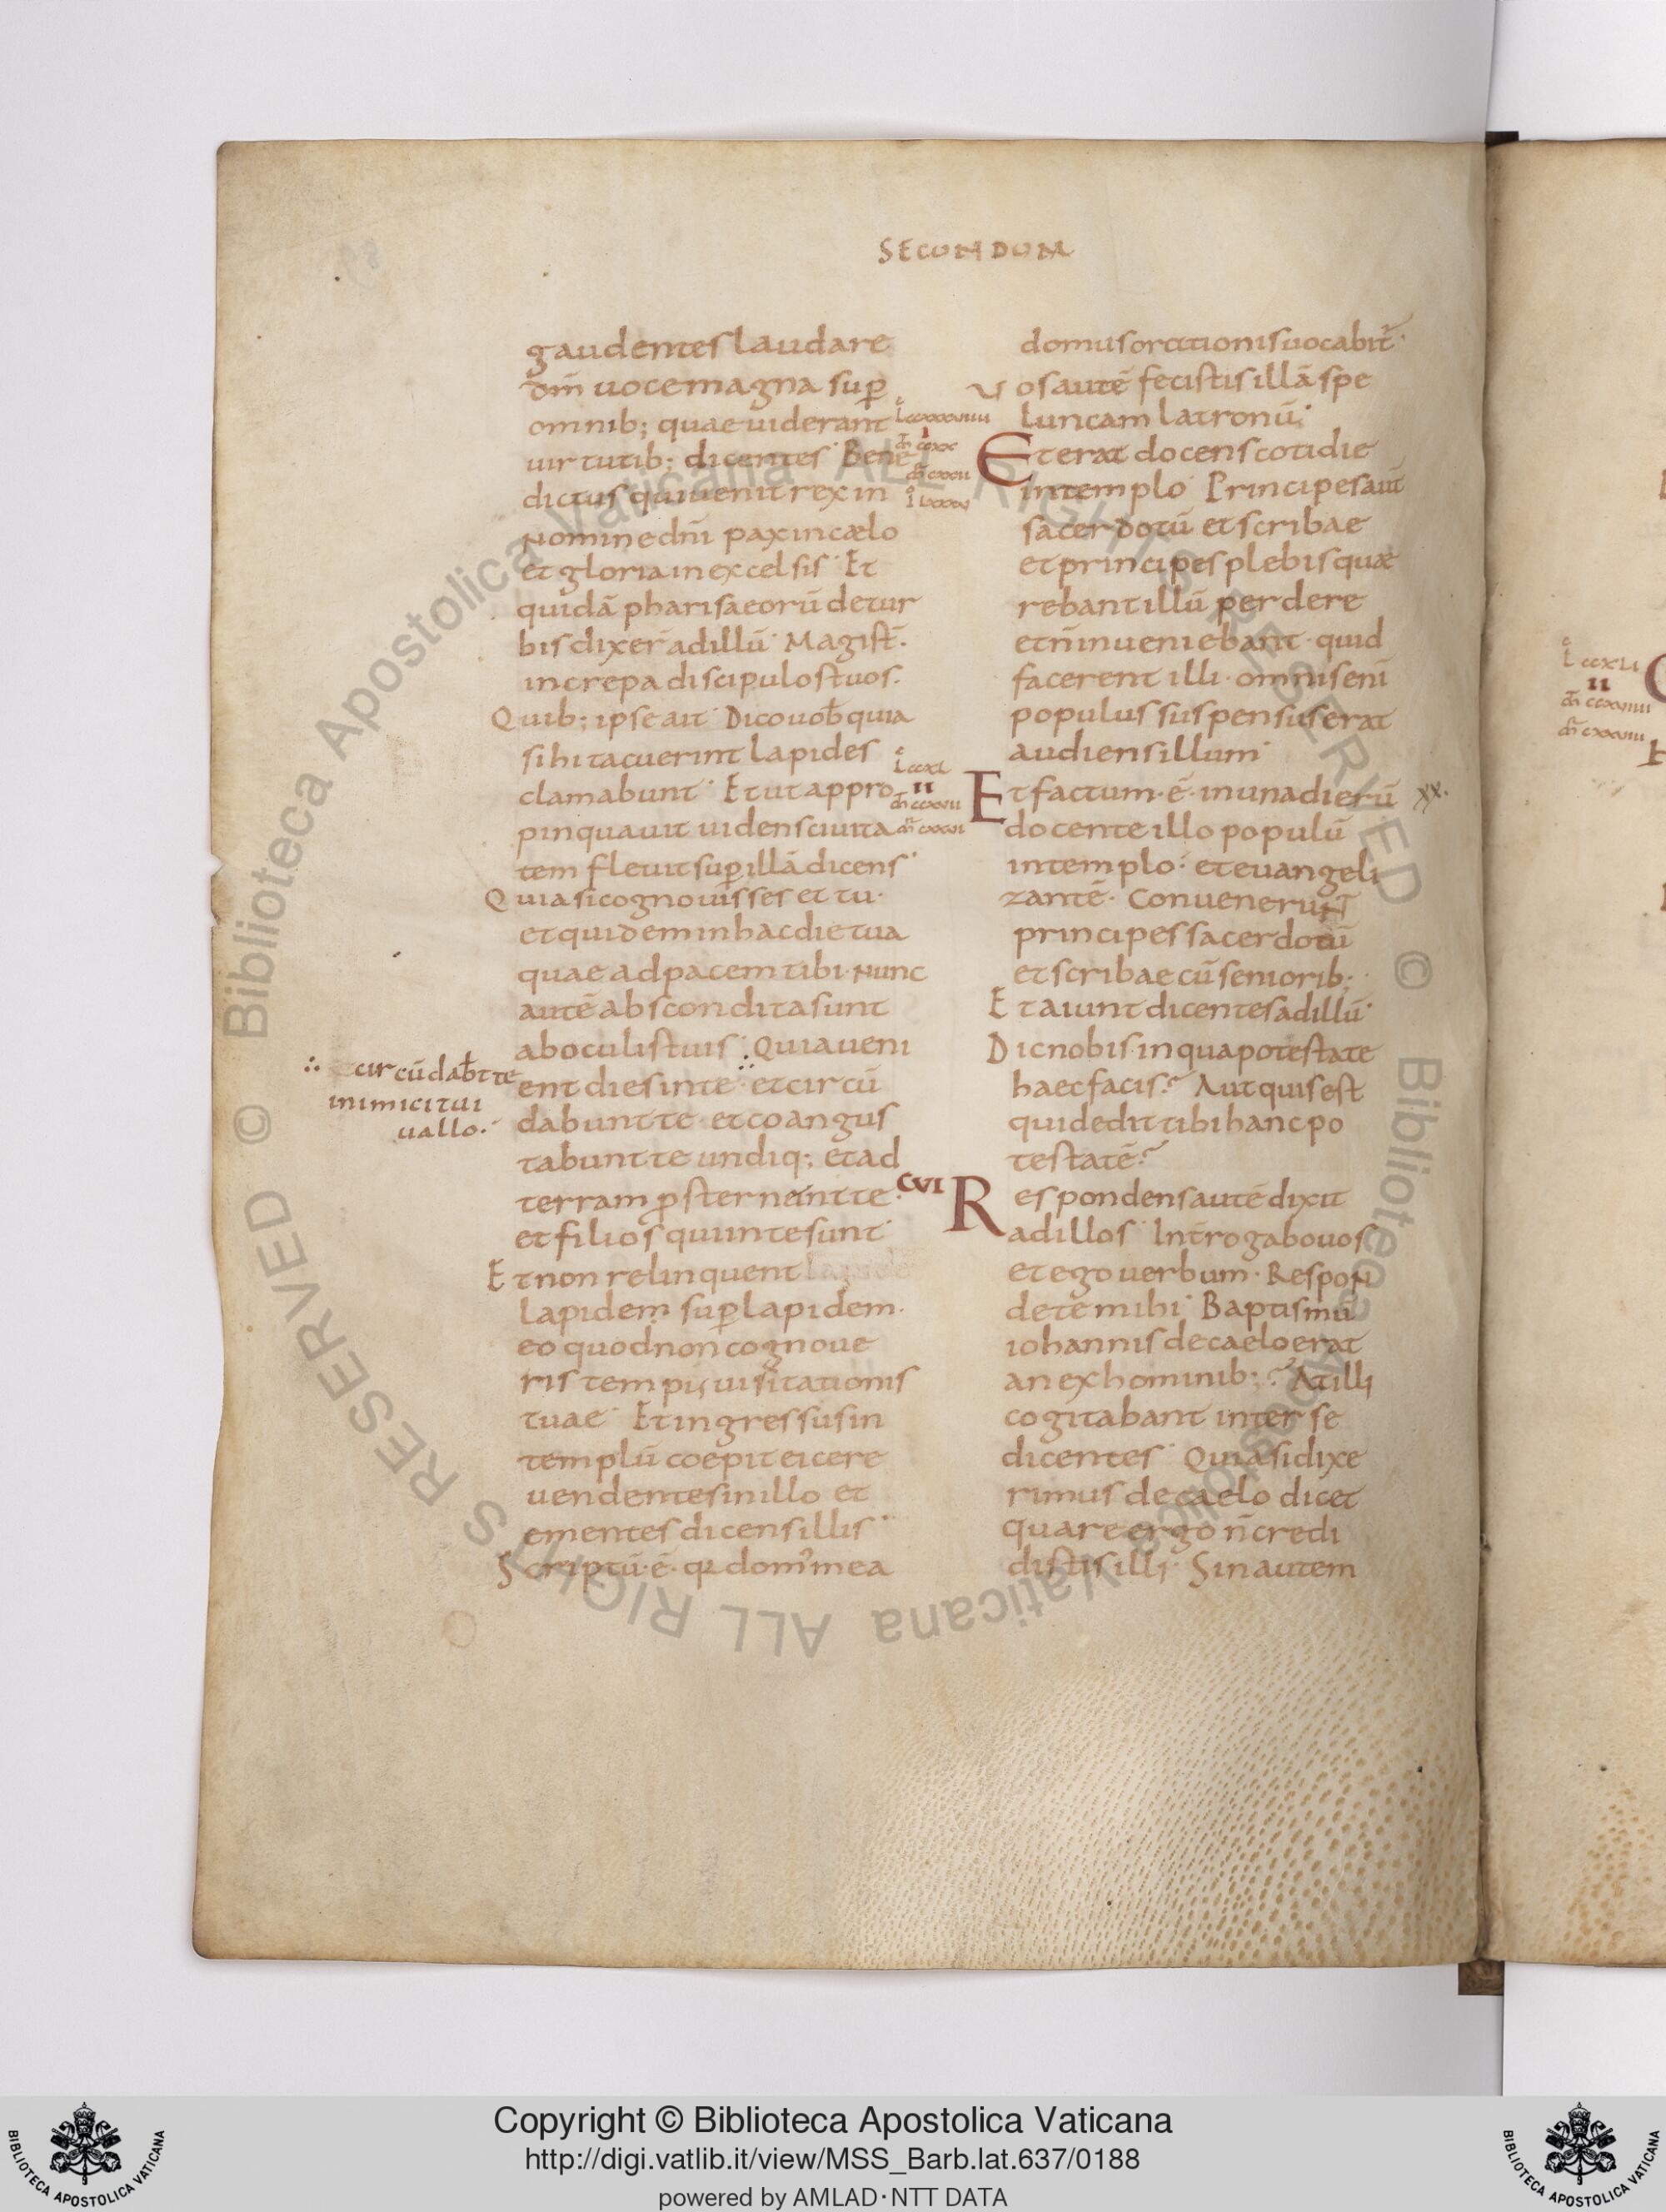 SECUNDUM
gaudentes laudare
dm̄ uoce magna sup̄
omnib; quae uiderant
uirtutib; dicentes· Bene
dictus qui uenit rex in
nomine dn̄i pax in cælo
et gloria in excelsis· Et
quidā pharisaeorū de tur
bis dixer̄ ad illū· Magist̄·
increpa discipulos tuos·
Quib; ipse ait· Dico uob̄ quia
si hi tacuerint lapides
clamabunt· Et ut appro
pinquauit uidens ciuita
tem fleuit sup̄ illā dicens·
Quia si cognouisses et tu·
et quidem in hac die tua
quae ad pacem tibi· nunc
autē abscondita sunt
ab oculis tuis· Quia ueni
ent dies in te ∴ et circū
dabunt te· et coangus
tabunt te undiq; et ad
terram ꝓsternent te·
et filios qui in te sunt·
Et non relinquent
lapidem sup̄ lapidem·
eo quod non cognoue
ris temp; uisitationis
tuae· Et ingressus in
templū coepit eicere
uendentes in illo et
ementes dicens illis·
Scriptū·ē· qꝛ dom᾽ mea
∴ circūdab̄t te
inimici tui
uallo·
ccxl
II
CVI
domus orationis uocabit̄·
Uos autē fecistis illā spe
luncam latronū·
Et erat docens cotidie
in templo· Principes aut̄
sacerdotū et scribae
et principes plebis quæ
rebant illū perdere
et n̄ inueniebant· quid
facerent illi· omnis eni̅
populus suspensus erat
audiens illum·
Et factum·ē· in una dierū
xx·
docente illo populū
in templo· et euangeli
zantē· Conuenerunt
principes sacerdotū
et scribae cū seniorib;
Et aiunt dicentes ad illū·
Dic nobis· in qua potestate
haec facis? Aut quis est
qui dedit tibi hanc po
testatē?
Respondens autē dixit
ad illos· Int̄rogabo uos
et ego uerbum· Respon
dete mihi· Baptismū
iohannis de caelo erat
an ex hominib;? At illi
cogitabant inter se
dicentes· Quia si dixe
rimus de caelo dicet
quare ergo n̄ credi
distis illi· Sin autem
ccxli
II
Copyright © Biblioteca Apostolica Vaticana
http://digi.vatlib.it/view/MSS_Barb.lat.637/0188
powered by AMLAD·NTT DATA
BIBLIOTECA APOSTOLICA VATICANA
BIBLIOTECA APOSTOLICA VATICANA
© Biblioteca Apostolica Vaticana ALL RIGHTS RESERVED © Biblioteca Apostolica Vaticana ALL RIGHTS RESERVED